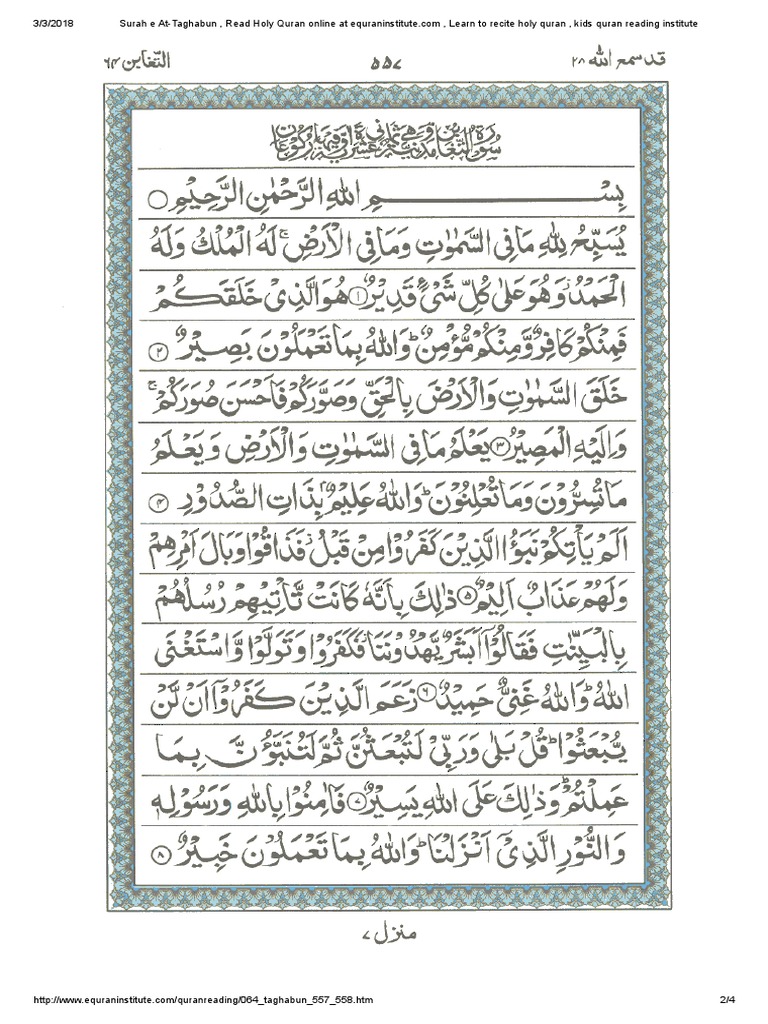 3/3/2018 Surah e At-Taghabun , Read Holy Quran online at equraninstitute.com , Learn to recite holy quran , kids quran reading institute
قد سمع الله ٢٨ ٥٥٧ التغابن ٦٤
سُوْرَةُ التَّغَابُنِ مَدَنِيَّةٌ وَّهِيَ ثَمَانِيَ عَشْرَةَ اٰيَةً وَّفِيْهَا رُكُوْعَانِ
بِسْمِ اللهِ الرَّحْمٰنِ الرَّحِيْمِ
يُسَبِّحُ لِلّٰهِ مَا فِي السَّمٰوٰتِ وَمَا فِي الْاَرْضِ ۚ لَهُ الْمُلْكُ وَلَهُ
الْحَمْدُ ۫ وَهُوَ عَلٰى كُلِّ شَيْءٍ قَدِيْرٌ ۝١ هُوَ الَّذِيْ خَلَقَكُمْ
فَمِنْكُمْ كَافِرٌ وَّمِنْكُمْ مُّؤْمِنٌ ؕ وَاللهُ بِمَا تَعْمَلُوْنَ بَصِيْرٌ ۝٢
خَلَقَ السَّمٰوٰتِ وَالْاَرْضَ بِالْحَقِّ وَصَوَّرَكُمْ فَاَحْسَنَ صُوَرَكُمْ ۚ
وَاِلَيْهِ الْمَصِيْرُ ۝٣ يَعْلَمُ مَا فِي السَّمٰوٰتِ وَالْاَرْضِ وَيَعْلَمُ
مَا تُسِرُّوْنَ وَمَا تُعْلِنُوْنَ ؕ وَاللهُ عَلِيْمٌۢ بِذَاتِ الصُّدُوْرِ ۝٤
اَلَمْ يَاْتِكُمْ نَبَؤُا الَّذِيْنَ كَفَرُوْا مِنْ قَبْلُ ۫ فَذَاقُوْا وَبَالَ اَمْرِهِمْ
وَلَهُمْ عَذَابٌ اَلِيْمٌ ۝٥ ذٰلِكَ بِاَنَّهٗ كَانَتْ تَّاْتِيْهِمْ رُسُلُهُمْ
بِالْبَيِّنٰتِ فَقَالُوْۤا اَبَشَرٌ يَّهْدُوْنَنَا ۫ فَكَفَرُوْا وَتَوَلَّوْا وَّاسْتَغْنَى
اللهُ ؕ وَاللهُ غَنِيٌّ حَمِيْدٌ ۝٦ زَعَمَ الَّذِيْنَ كَفَرُوْۤا اَنْ لَّنْ
يُّبْعَثُوْا ؕ قُلْ بَلٰى وَرَبِّيْ لَتُبْعَثُنَّ ثُمَّ لَتُنَبَّؤُنَّ بِمَا
عَمِلْتُمْ ؕ وَذٰلِكَ عَلَى اللهِ يَسِيْرٌ ۝٧ فَاٰمِنُوْا بِاللهِ وَرَسُوْلِهٖ
وَالنُّوْرِ الَّذِيْۤ اَنْزَلْنَا ؕ وَاللهُ بِمَا تَعْمَلُوْنَ خَبِيْرٌ ۝٨
منزل ٧
http://www.equraninstitute.com/quranreading/064_taghabun_557_558.htm 2/4